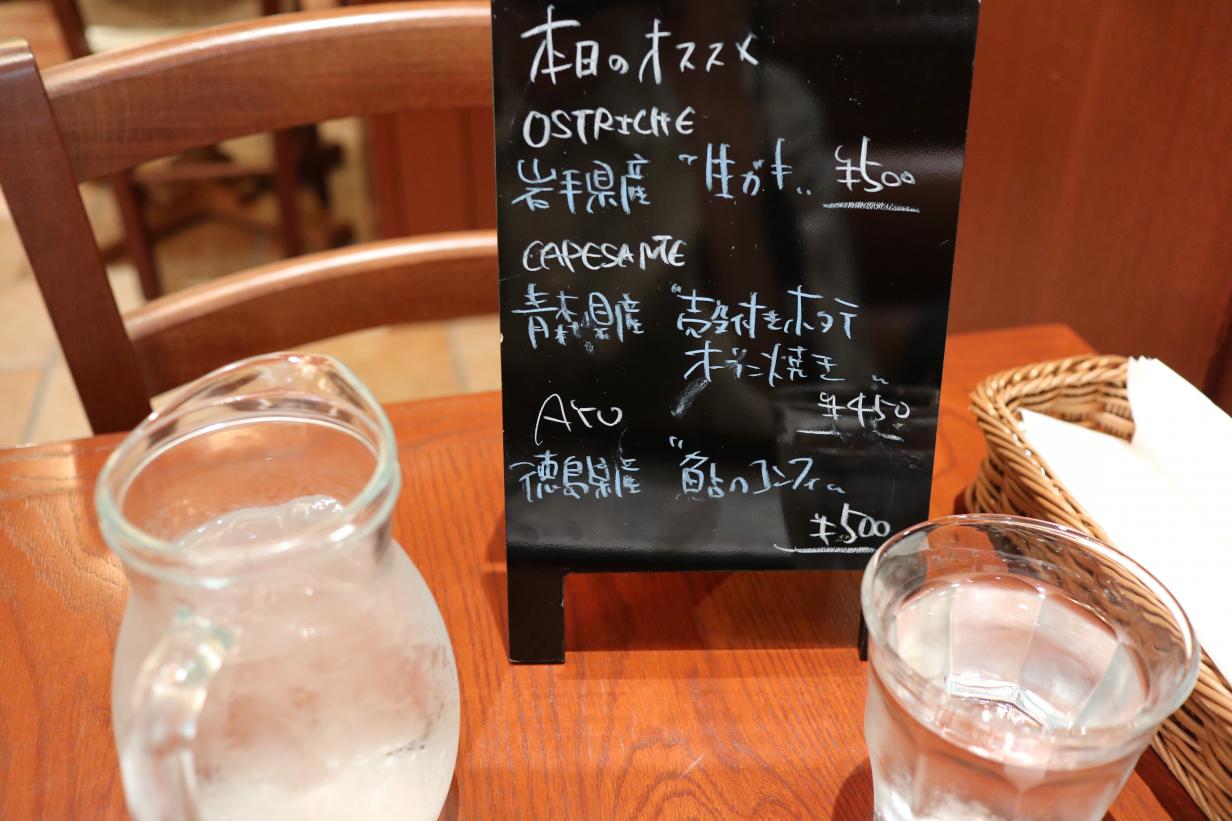 本日のオススメ
OSTRICHE
岩手県産 "生ガキ" ¥500
CAPESANTE
青森県産 "殻付きホタテ
オーブン焼き"
¥450
AYU
徳島県産 "鮎のコンフィ"
¥500